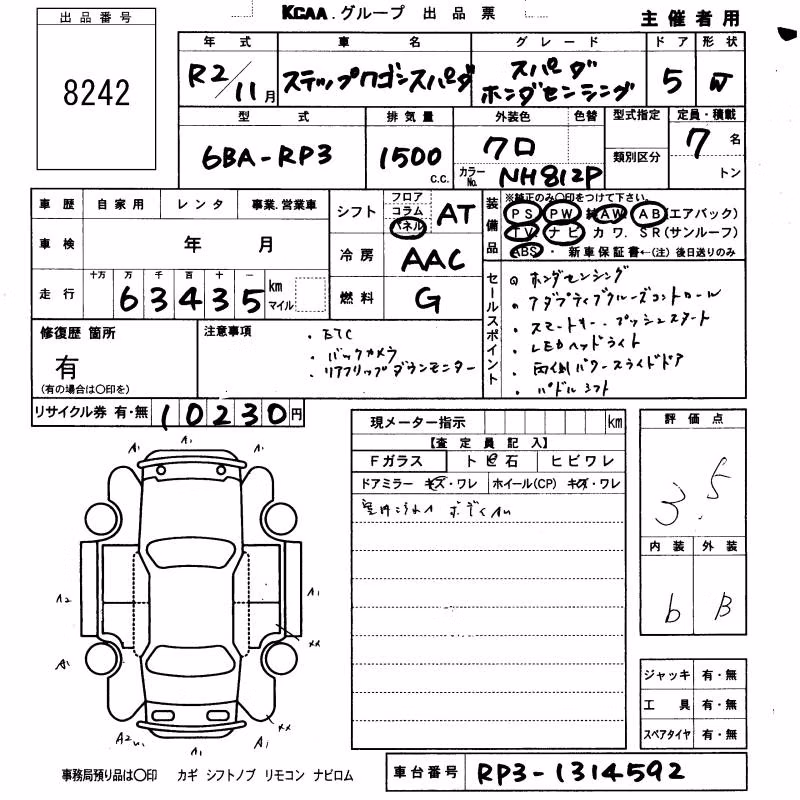 出品番号
8242
KCAA.グループ 出品票
主催者用
年式 車名 グレード ドア 形状
R2/11月 ステップワゴンスパーダ スパーダ ホンダセンシング 5 W
型式 排気量 外装色 色替 型式指定 定員・積載
6BA-RP3 1500 c.c. クロ 類別区分 7名
カラーNo. NH812P トン
車歴 自家用 レンタ 事業.営業車
車検 年 月
十万 万 千 百 十 一
走行 63435 km マイル
シフト フロア コラム パネル AT
冷房 AAC
燃料 G
装備品
※純正のみ○印をつけて下さい。
PS PW 純AW AB(エアバック)
TV ナビ カワ. SR(サンルーフ)
ABS・新車保証書←(注) 後日送りのみ
セールスポイント
ホンダセンシング
アダプティブクルーズコントロール
スマートキー、プッシュスタート
LEDヘッドライト
両側パワースライドドア
パドルシフト
修復歴 箇所
有
(有の場合は○印を)
注意事項
・ETC
・バックカメラ
・リアフリップダウンモニター
リサイクル券 有・無 10230円
現メーター指示 km
【査定員記入】
Fガラス トビ石 ヒビワレ
ドアミラー キズ・ワレ ホイール(CP) キズ・ワレ
評価点
3.5
内装 外装
b B
A1 A1 A1
A2 A1
A1 XX
A2 XX
A1 A1
ジャッキ 有・無
工具 有・無
スペアタイヤ 有・無
事務局預り品は○印 カギ シフトノブ リモコン ナビロム
車台番号 RP3-1314592